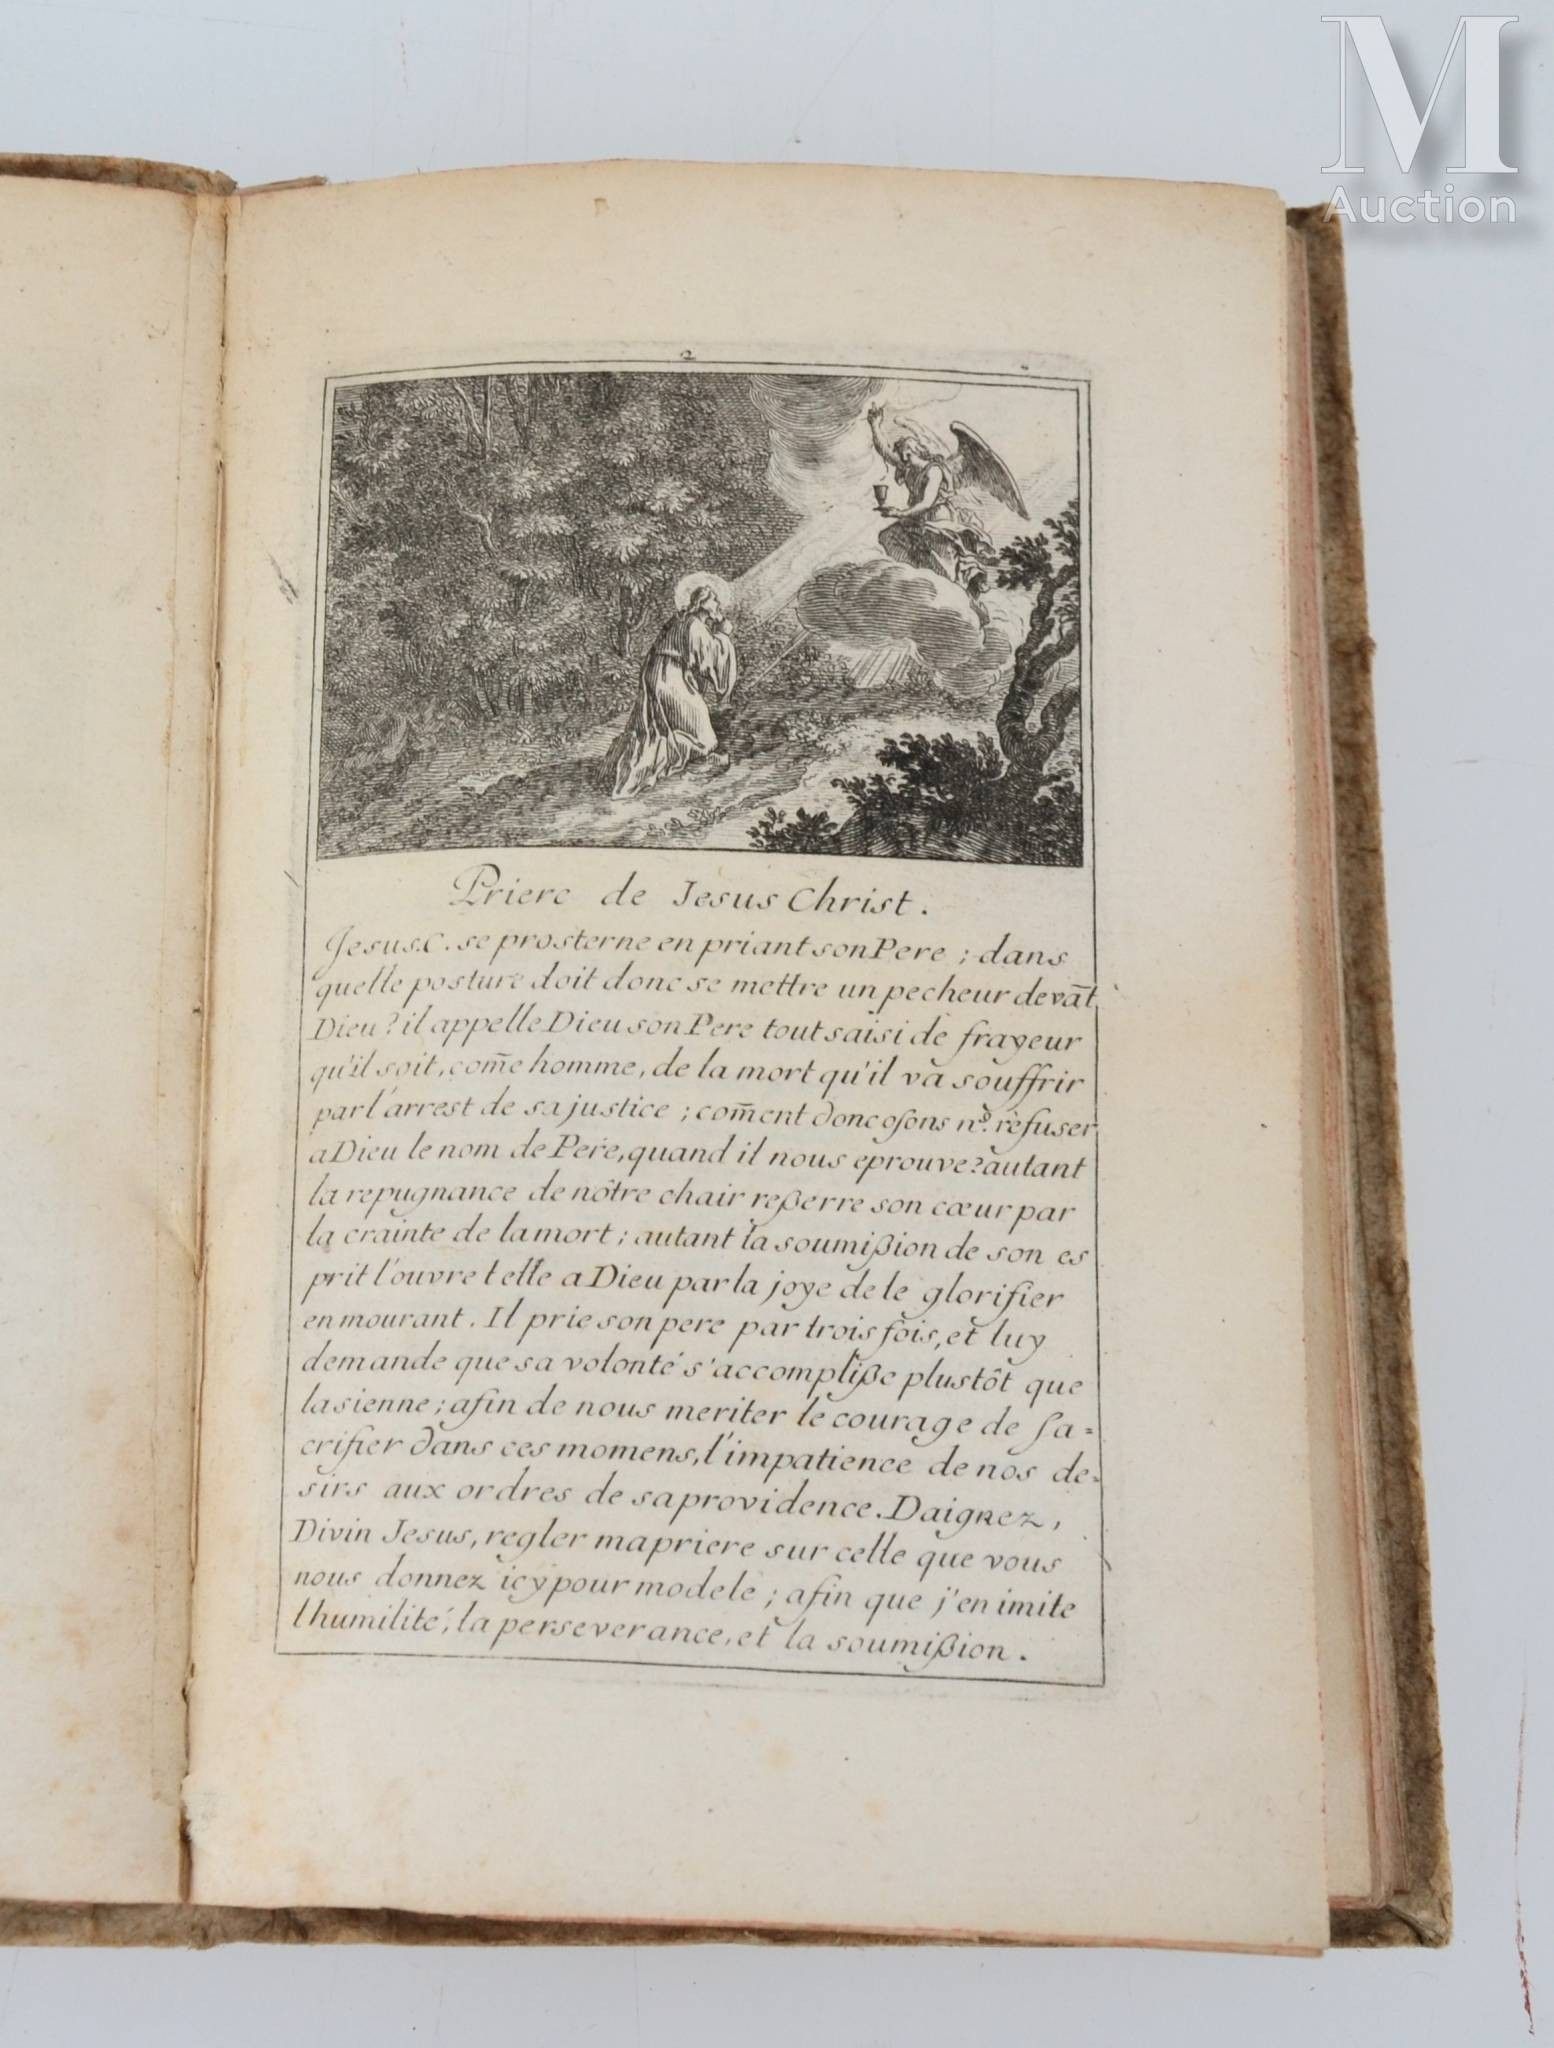 M
Auction
2
Priere de Jesus Christ.
Jesus.C. se prosterne en priant son Pere ; dans
quelle posture doit donc se mettre un pecheur devāt
Dieu? il appelle Dieu son Pere tout saisi de frayeur
qu'il soit, com̄e homme, de la mort qu'il va souffrir
par l'arrest de sa justice ; com̄ent donc osons n.s refuser
a Dieu le nom de Pere, quand il nous eprouve? autant
la repugnance de nôtre chair reßerre son cœur par
la crainte de la mort ; autant la soumißion de son es
prit l'ouvre t elle a Dieu par la joye de le glorifier
en mourant. Il prie son pere par trois fois, et luy
demande que sa volonté s'accomplißе plustôt que
la sienne ; afin de nous meriter le courage de sa=
crifier dans ces momens, l'impatience de nos de=
sirs aux ordres de sa providence. Daignez,
Divin Jesus, regler ma priere sur celle que vous
nous donnez icy pour modele ; afin que j'en imite
l'humilité, la perseverance, et la soumißion.